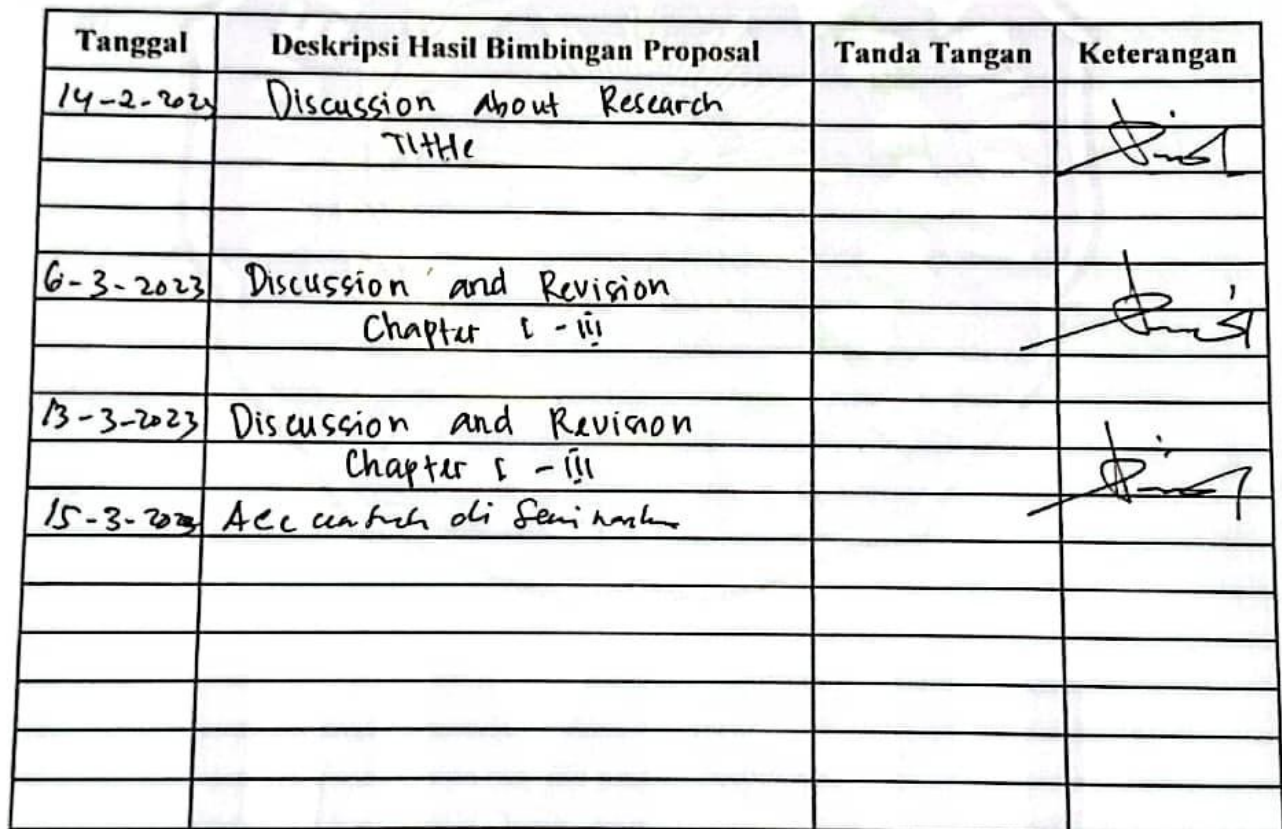 Tanggal Deskripsi Hasil Bimbingan Proposal Tanda Tangan Keterangan
14-2-2023 Discussion About Research
Tittle
6-3-2023 Discussion and Revision
Chapter I - III
13-3-2023 Discussion and Revision
Chapter I - III
15-3-2023 Acc untuk di Seminarkan